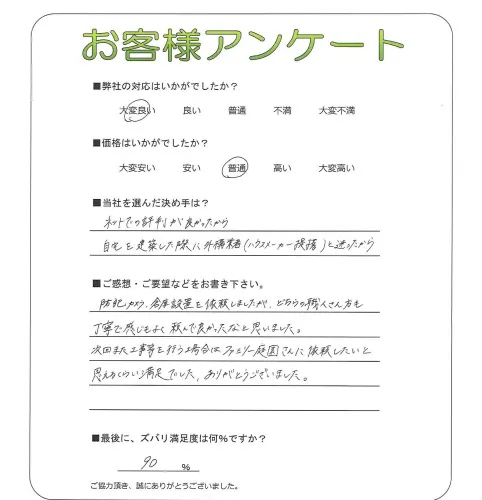 お客様アンケート
■弊社の対応はいかがでしたか？
大変良い 良い 普通 不満 大変不満
■価格はいかがでしたか？
大変安い 安い 普通 高い 大変高い
■当社を選んだ決め手は？
ネットでの評判が良かったから
自宅を建築した際に外構業者(ハウスメーカー提携)と迷ったから
■ご感想・ご要望などをお書き下さい。
防犯カメラ、倉庫設置を依頼しましたが、どちらの職人さん方も
丁寧で感じもよく頼んで良かったなと思いました。
次回また工事等を行う場合はファミリー庭園さんに依頼したいと
思えるくらい満足でした。ありがとうございました。
■最後に、ズバリ満足度は何％ですか？
90 ％
ご協力頂き、誠にありがとうございました。